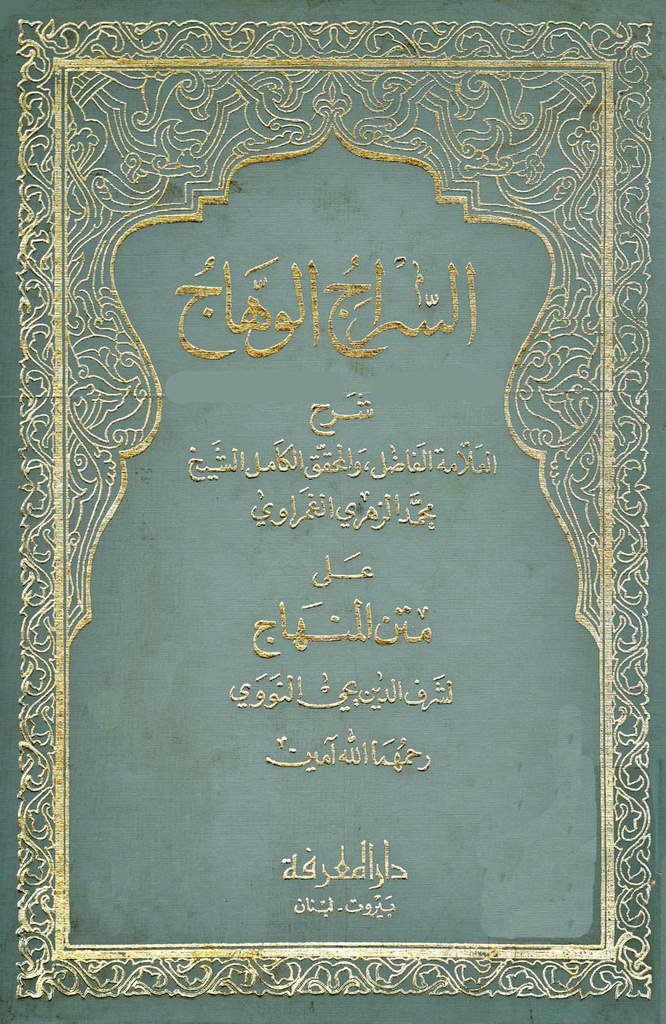 السِّرَاجُ الوَهَّاجُ
شَرح
العَلّامة الفَاضل، وَالمحقق الكَامل الشَيخ
محمَّد الزهري الغمراوي
عَلى
متن المنهَاج
لشَرف الدين يحيى النوَوي
رحمهُمَا الله آمين
دار المعرفة
بَيروت - لبنان